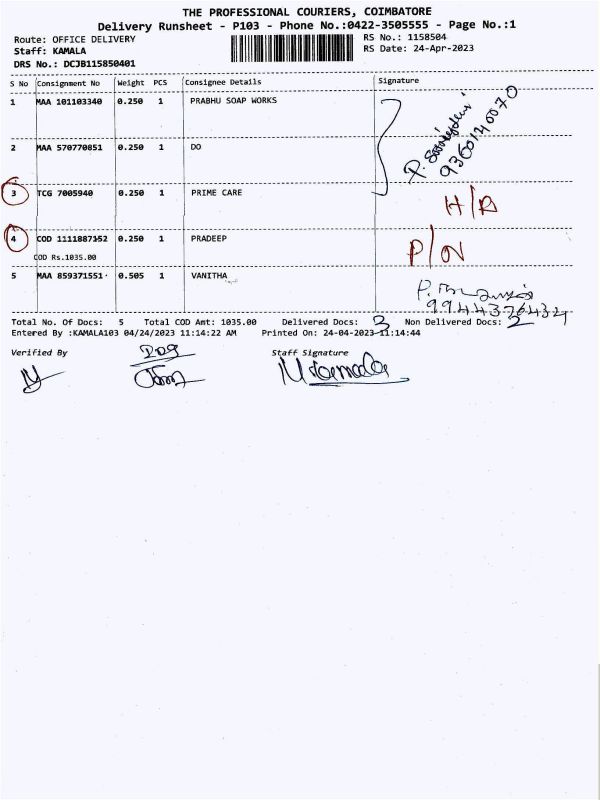 THE PROFESSIONAL COURIERS, COIMBATORE
Delivery Runsheet - P103 - Phone No.:0422-3505555 - Page No.:1
Route: OFFICE DELIVERY RS No.: 1158504
Staff: KAMALA RS Date: 24-Apr-2023
DRS No.: DCJB115850401
S No Consignment No Weight PCS Consignee Details Signature
1 MAA 101103340 0.250 1 PRABHU SOAP WORKS
9360140070
2 MAA 570770851 0.250 1 DO
3 TCG 7005940 0.250 1 PRIME CARE H/A
4 COD 1111887152 0.250 1 PRADEEP P/N
COD Rs.1035.00
5 MAA 859371551 0.505 1 VANITHA
Total No. Of Docs: 5 Total COD Amt: 1035.00 Delivered Docs: 3 Non Delivered Docs: 2
Entered By :KAMALA103 04/24/2023 11:14:22 AM Printed On: 24-04-2023-11:14:44
Verified By Staff Signature